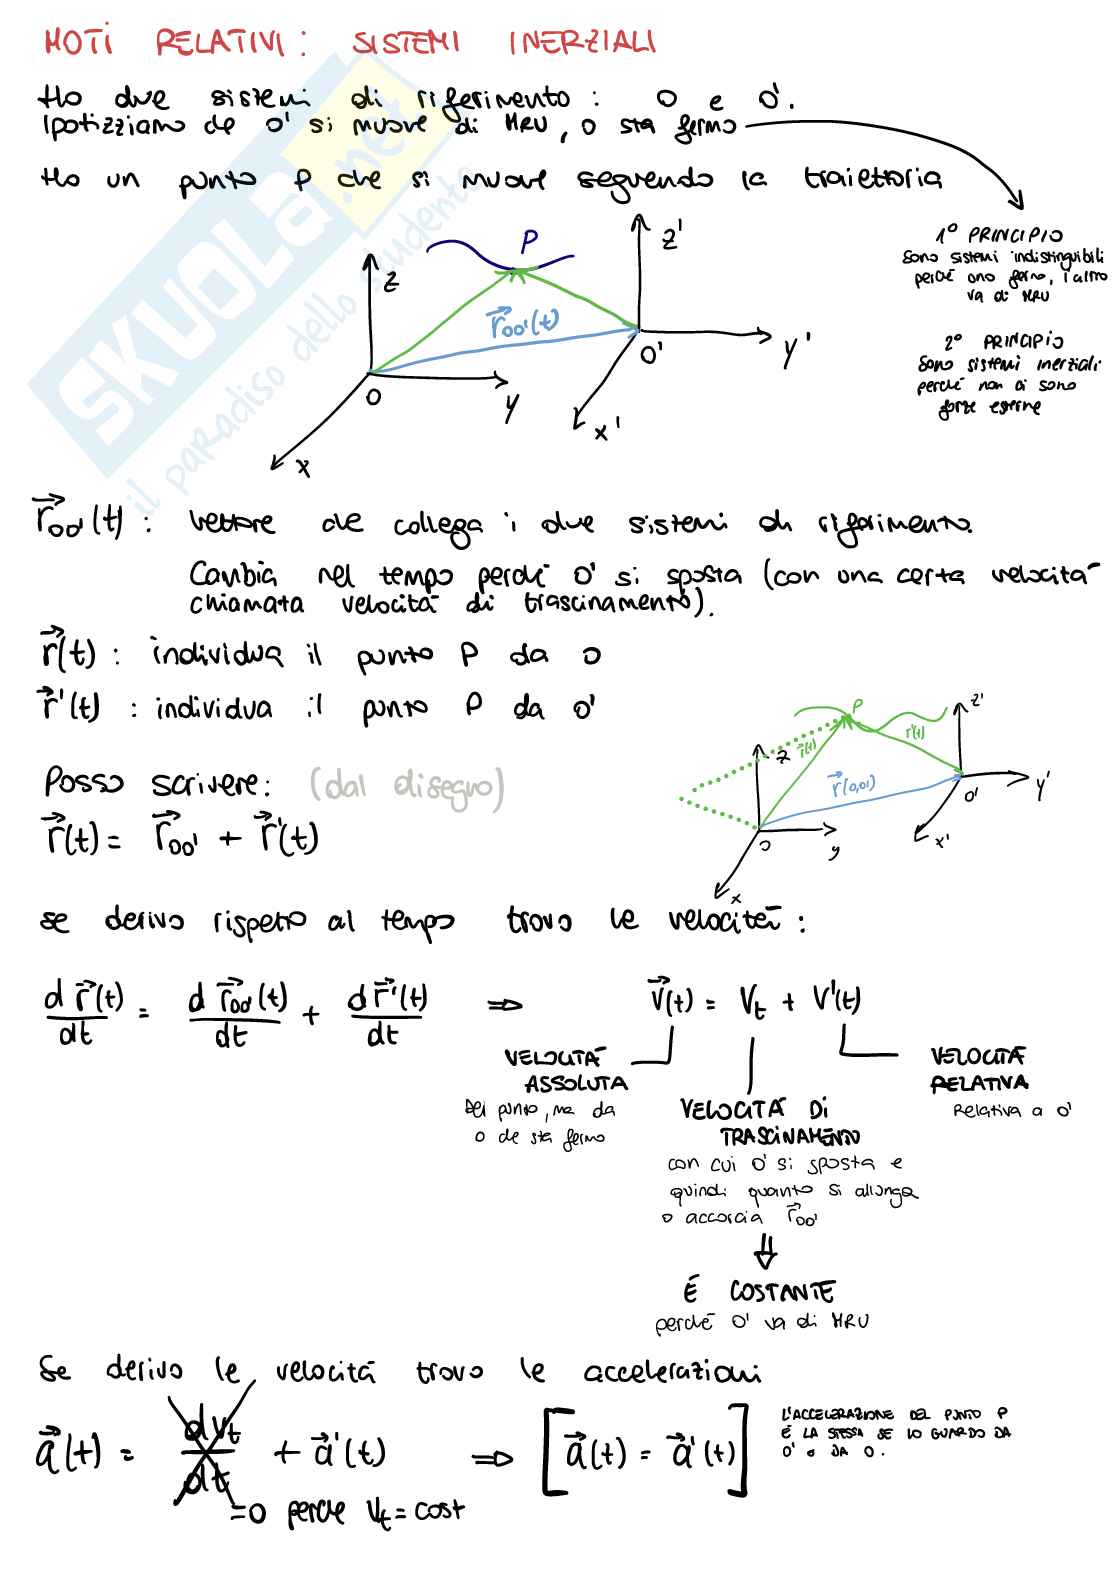 MOTI RELATIVI: SISTEMI INERZIALI
Ho due sistemi di riferimento: O e O'.
Ipotizziamo che O' si muove di MRU, O sta fermo
Ho un punto P che si muove seguendo la traiettoria
1° PRINCIPIO
Sono sistemi indistinguibili
perché uno fermo, l'altro
va di MRU
2° PRINCIPIO
Sono sistemi inerziali
perché non ci sono
forze esterne
P
z
z'
r⃗oo'(t)
O
O'
y
y'
x
x'
SKUOLA.net
il paradiso dello studente
r⃗oo'(t): vettore che collega i due sistemi di riferimento.
Cambia nel tempo perché O' si sposta (con una certa velocità
chiamata velocità di trascinamento).
r⃗(t): individua il punto P da O
r⃗'(t): individua il punto P da O'
Posso scrivere: (dal disegno)
r⃗(t) = r⃗oo' + r⃗'(t)
P
z
z'
r⃗(t)
r'(t)
r⃗(0,01)
O
O'
y
y'
x
x'
se derivo rispetto al tempo trovo le velocità:
d r⃗(t)/dt = d r⃗oo'(t)/dt + d r⃗'(t)/dt ⇒ v⃗(t) = Vt + V'(t)
VELOCITÀ
ASSOLUTA
Del punto, ma da
O che sta fermo
VELOCITÀ DI
TRASCINAMENTO
con cui O' si sposta e
quindi quanto si allunga
o accorcia r⃗oo'
VELOCITÀ
RELATIVA
Relativa a O'
⇓
É COSTANTE
perché O' va di MRU
Se derivo le velocità trovo le accelerazioni
a⃗(t) = dVt/dt + a⃗'(t) ⇒ [a⃗(t) = a⃗'(t)]
=0 perche Vt = cost
L'ACCELERAZIONE DEL PUNTO P
É LA STESSA SE LO GUARDO DA
O' O DA O.